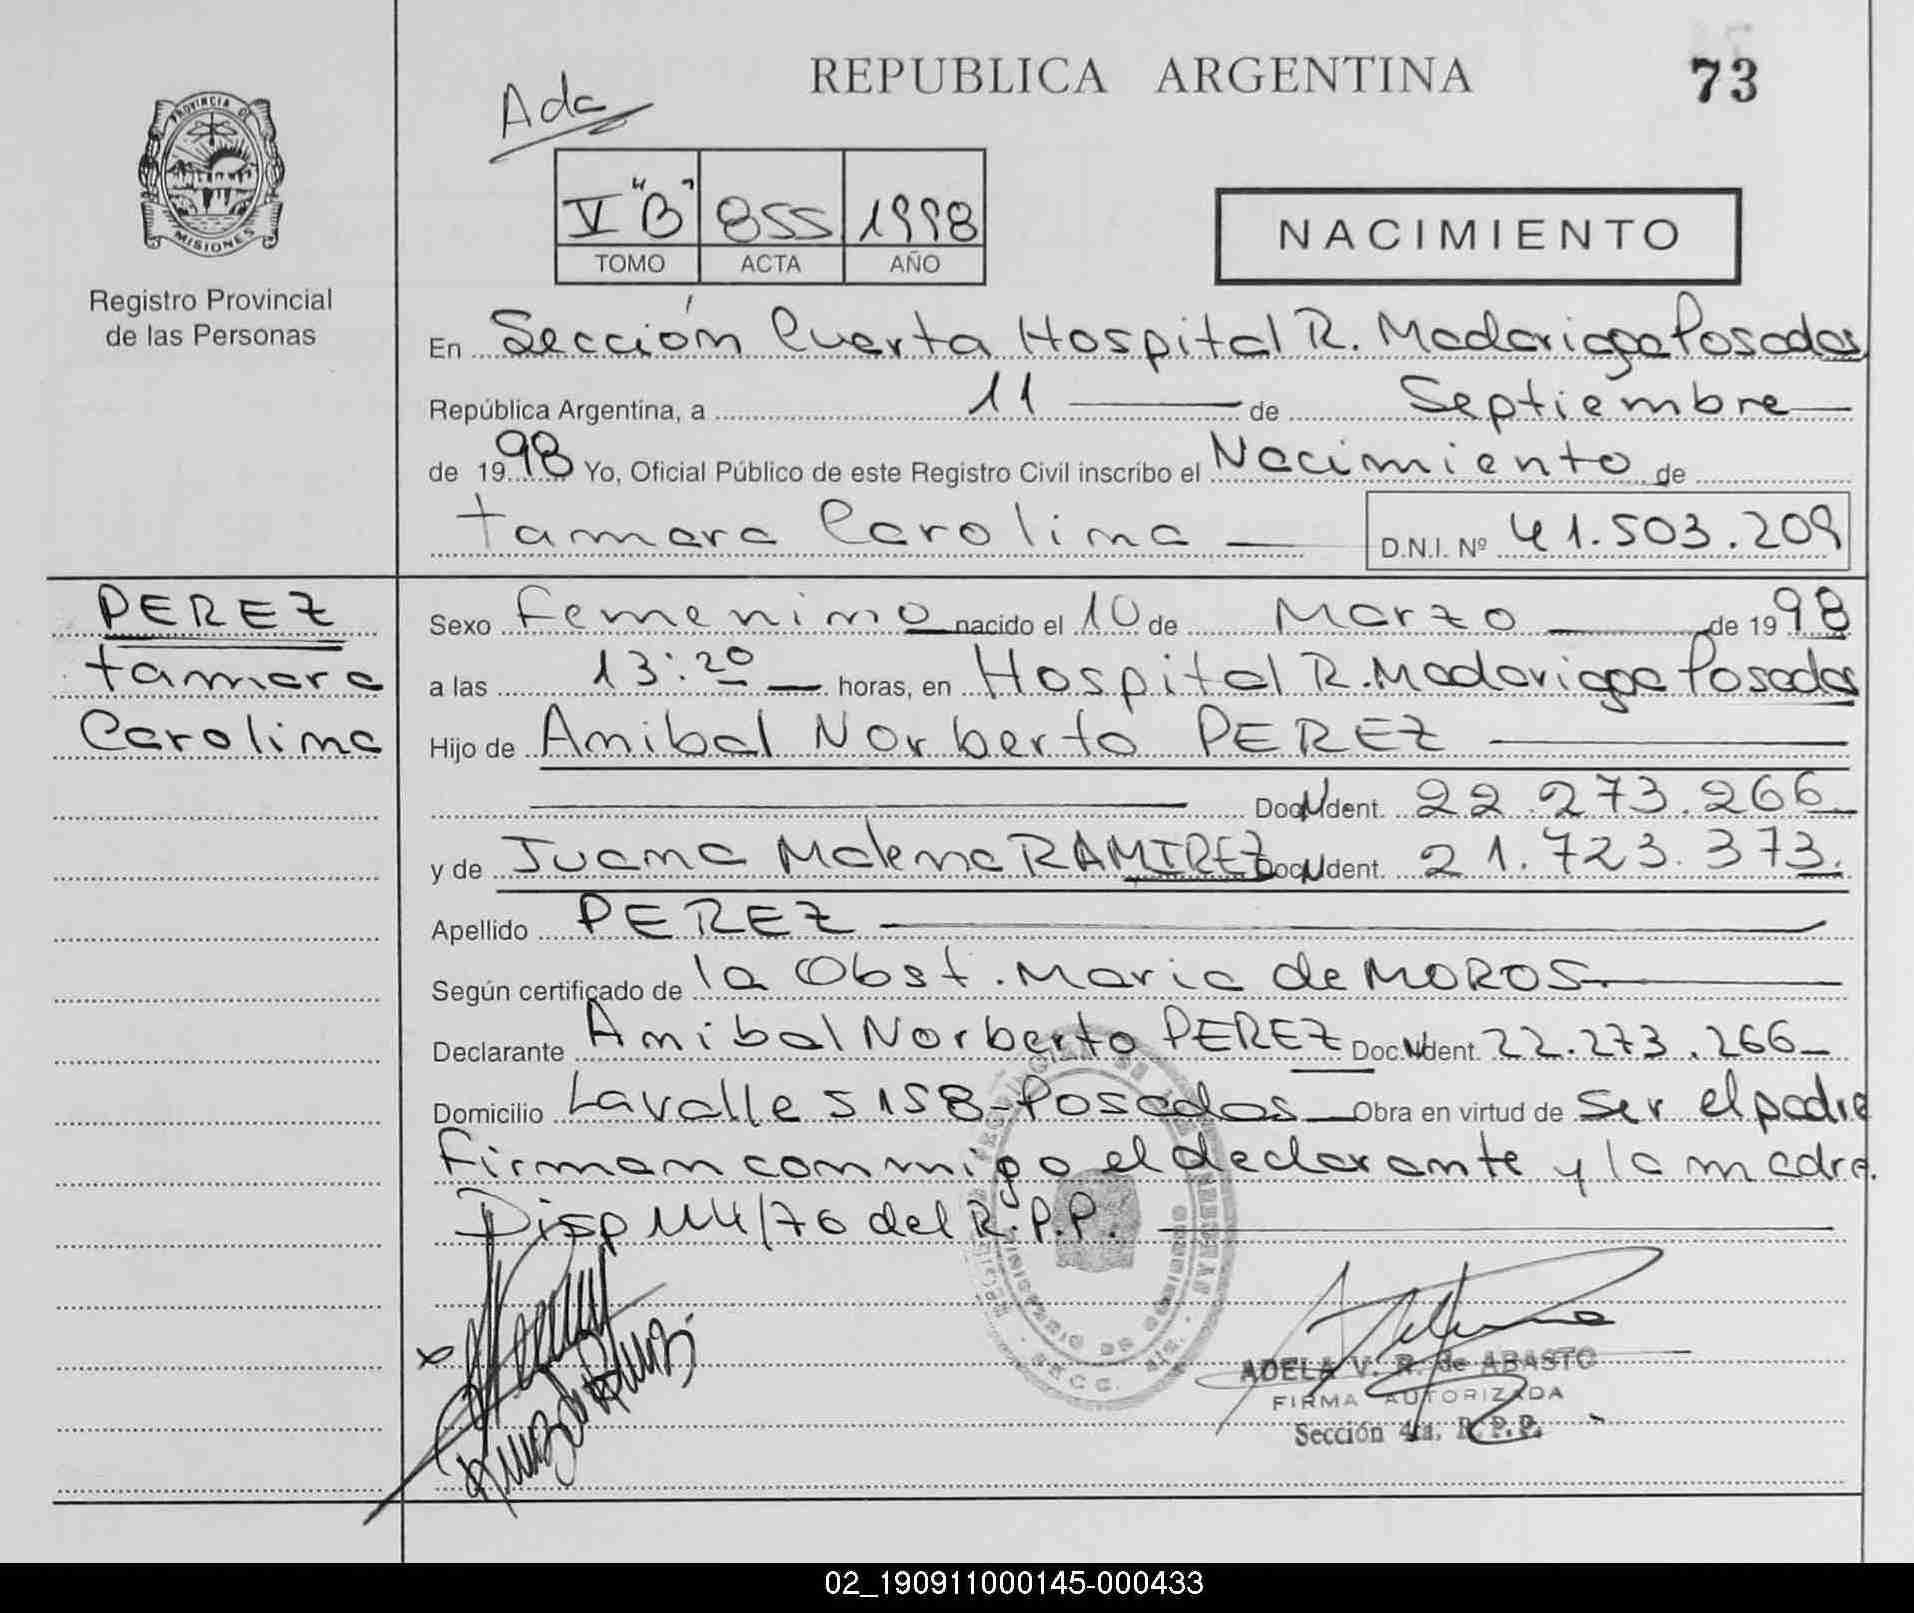 REPUBLICA ARGENTINA
73
Ada
PROVINCIA DE
MISIONES
V "B" 855 1998
TOMO ACTA AÑO
NACIMIENTO
Registro Provincial
de las Personas
En Sección Cuarta Hospital R. Madariaga Posadas
República Argentina, a 11 de Septiembre
de 1998 Yo, Oficial Público de este Registro Civil inscribo el Nacimiento de
tamara Carolina D.N.I. Nº 41.503.209
PEREZ
tamara
Carolina
Sexo femenino nacido el 10 de Marzo de 1998
a las 13:20 horas, en Hospital R. Madariaga Posadas
Hijo de Anibal Norberto PEREZ
Doc. Ident. 22.273.266
y de Juana Malena RAMIREZ Doc. Ident. 21.723.373.
Apellido PEREZ
Según certificado de la Obst. Maria de MOROS
Declarante Anibal Norberto PEREZ Doc. Ident. 22.273.266
Domicilio Lavalle 5158 - Posadas Obra en virtud de ser el padre
firman conmigo el declarante y la madre.
Disp 114/76 del R.P.P.
ADELA V. R. de ABASTO
FIRMA AUTORIZADA
Sección 4ta. R.P.P.
02_190911000145-000433